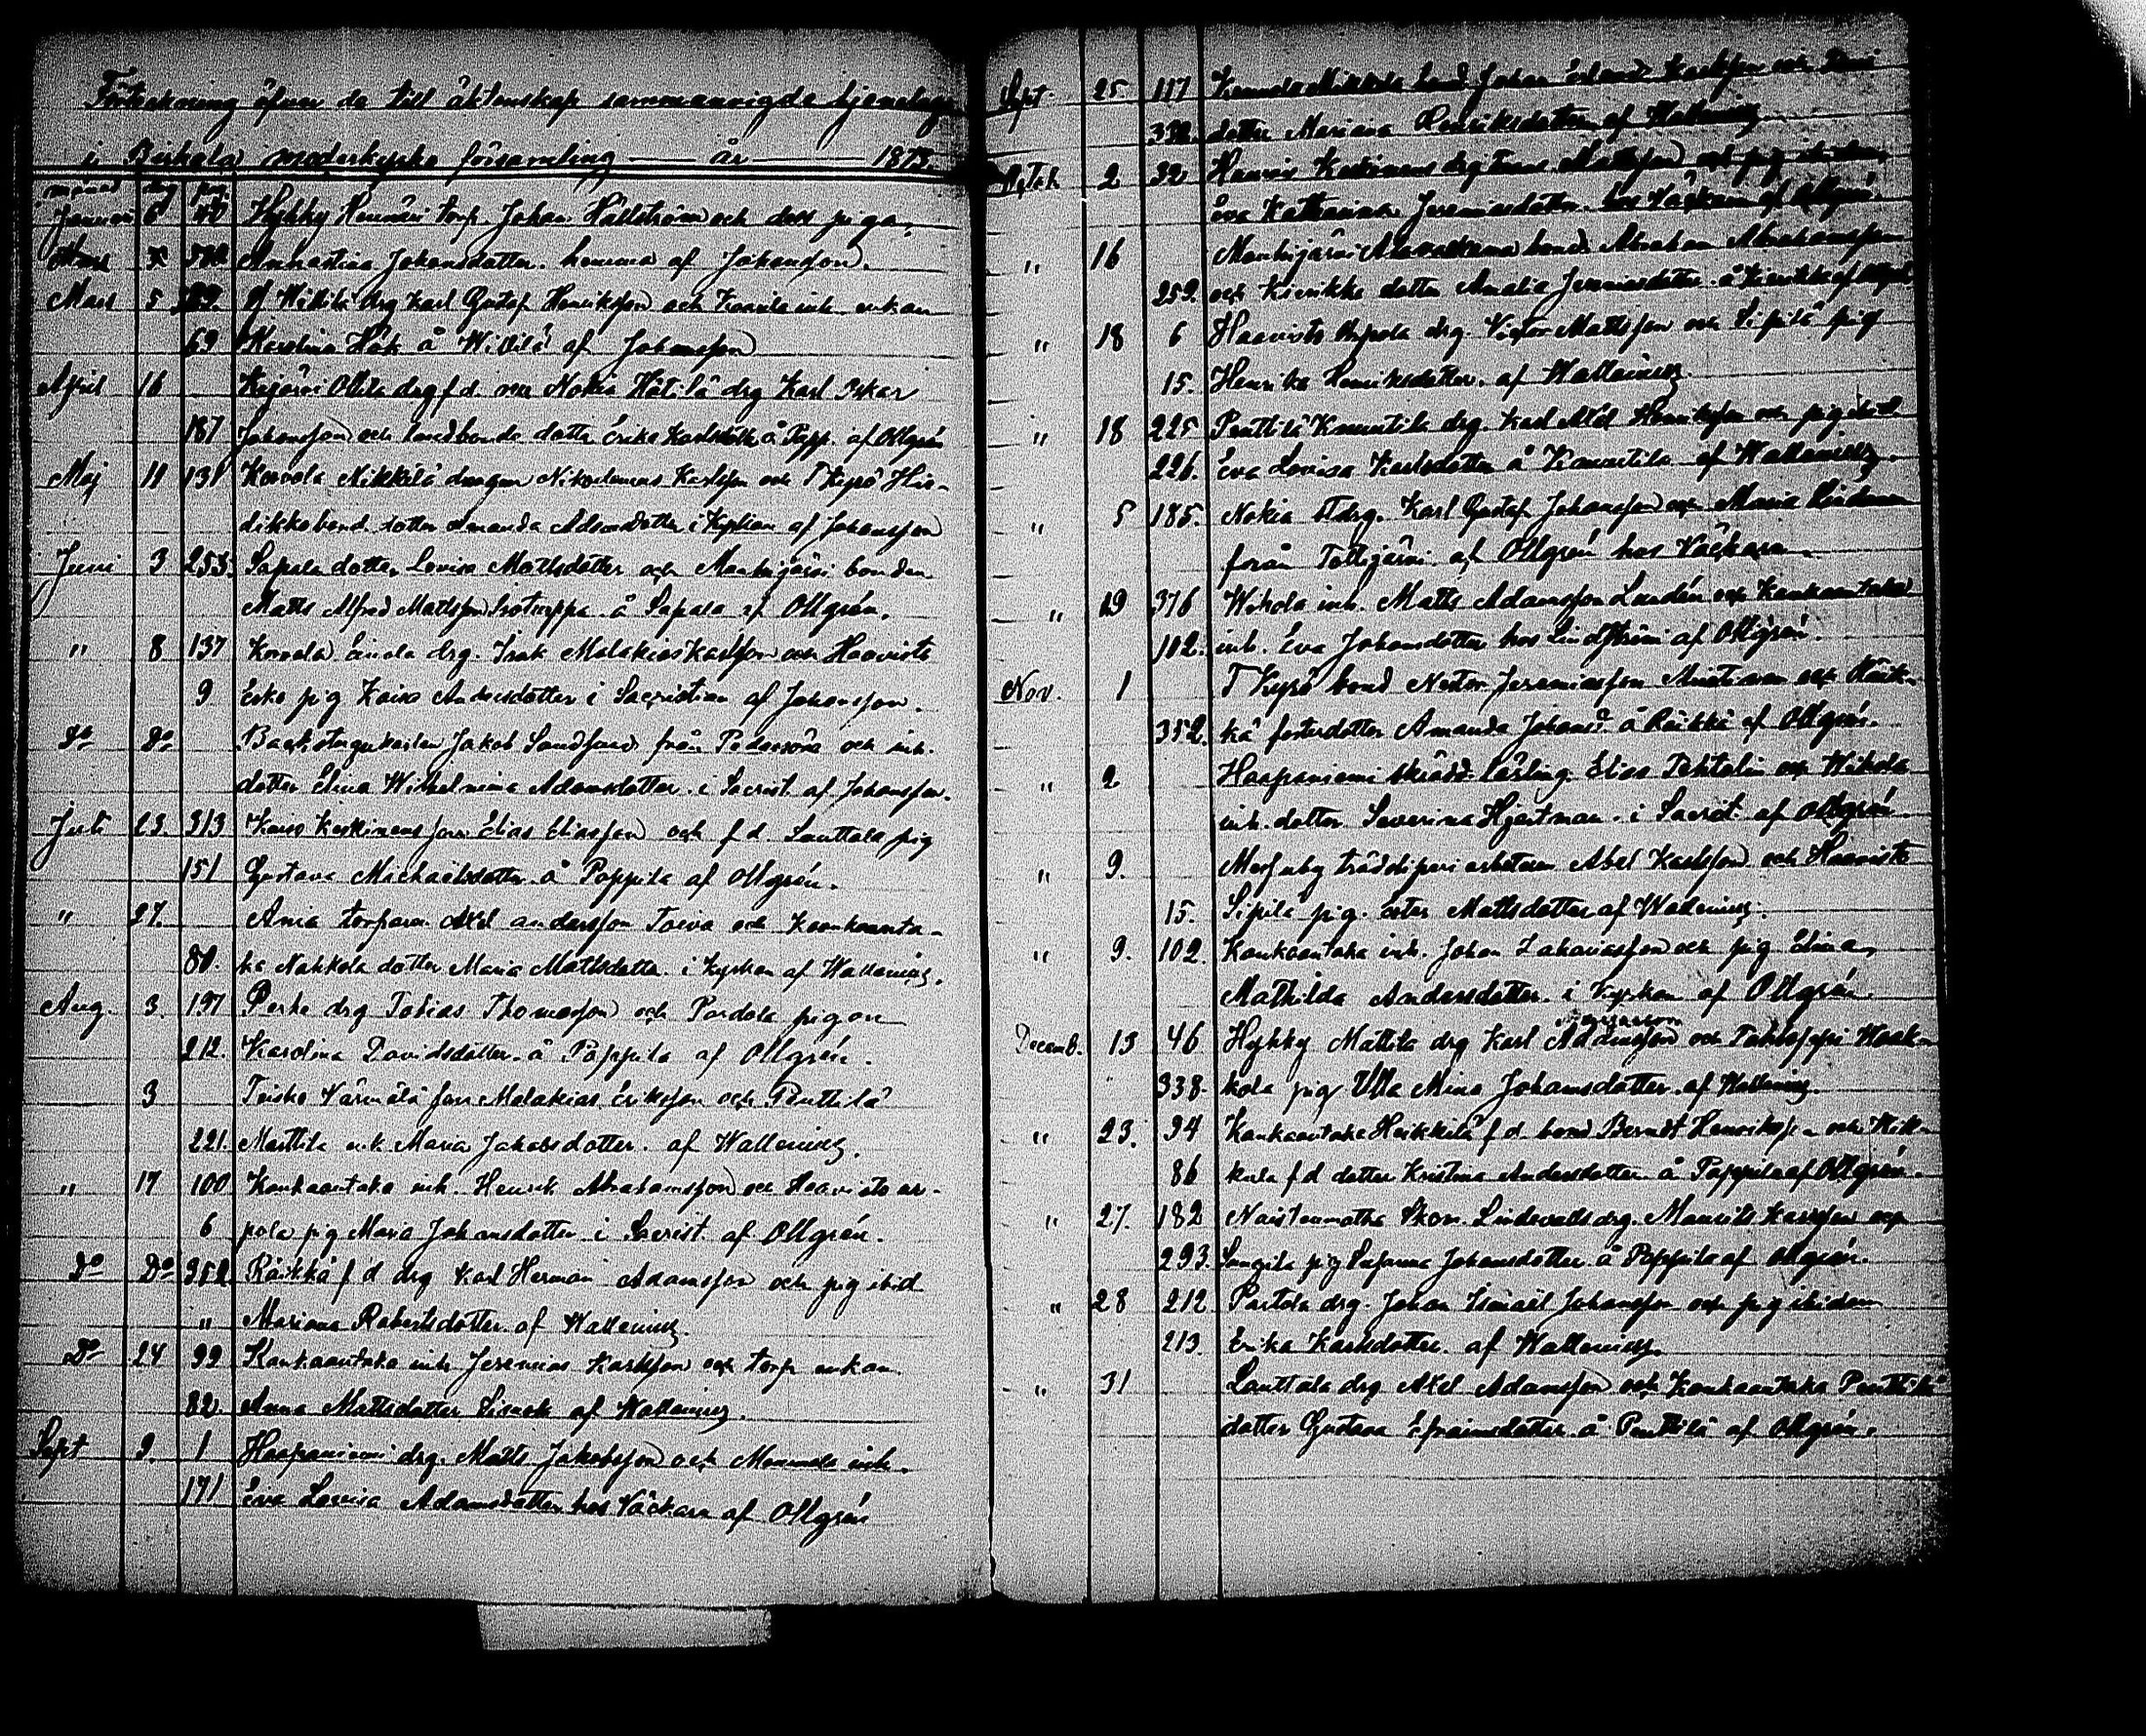 Förteckning öfver de till äktenskap sammanvigde hjonelag
i Birkala moderkyrko församling — år — 1875.
månad dag pag
Januari 6 Hyhky torp. Johan Hällström och dess piga,
Annastina Johansdotter. hemma af Johansson.
Mars 5 drg Karl Gustaf Henriksson och enkan
69 Karolina Hök å Wikilä af Johansson
April 16 drg f.d. Nokia drg Karl Oskar
187 Johansson och dotter Erika Karlsdotter å Papp. af Ollgrén
Maj 11 131 Korvola Nikkilä drengen Nikodemus Karlsson och T Kyrö Hii-
dikko bond dotter Amanda Adamsdotter i Kyrkan af Johansson
Juni 3 253. Sapala dotter Lovisa Mattsdotter och Mouhijärvi bonden
Matts Alfred Mattsson å Sapala af Ollgrén.
" 8 137 Korvola drg. Isak Malakias Karlsson och Haavisto
9 Esko pig Kaisa Andersdotter i Sacristian af Johansson.
Do Do Jakob Sandlund från Pedersöre och inh.
dotter Elina Wilhelmina Adamsdotter. i Sacrist. af Johansson.
Juli 23. 313 Elias Eliasson och f d. Lauttala pig
151 Gustava Michaelsdotter å Pappila af Ollgrén.
" 27. Ania torparen Axel Andersson Toiva och Kankaanta-
80. ka Nahkola dotter Maria Mattsdotter. i Kyrkan af Wallenius.
Aug. 3. 197 Perho drg Tobias Thomasson och Pardola pigan
212. Karolina Davidsdotter å Pappila af Ollgrén.
3 Teisko Värmälä Malakias Eriksson och Penttilä
221. Mattila inh. Maria Jakobsdotter. af Wallenius.
" 17 100 Kankaantaka inh. Henrik Abrahamsson och Haavisto ar-
6 pola pig Maria Johansdotter i Sacrist. af Ollgrén.
Do Do 352 Räikkä f d drg Karl Herman Adamsson och pig ibid
" Mariana Robertsdotter af Wallenius.
Do 24 99 Kankaantaka inh Jeremias Karlsson och torp enkan
82. Anna Mattsdotter af Wallenius.
Sept 9. 1 Haapaniemi drg. Matts Jakobsson och inh.
171 Eva Lovisa Adamsdotter hos Väckare af Ollgrén
Sept 25. 117 Johan Karlsson och
332 dotter Mariana Henriksdotter af Wallenius
Octob. 2 32. drg Mattsson och pig ibidem,
Eva Katharina Jeremiasdotter. hos Väckare af Ollgrén.
" 16 Mouhijärvi bond. Abraham Abrahamsson
259. och Kierikka dotter Amalia Jeremiasdotter. å Kierikka af Ollgrén
" 18 6 Haavisto Arpola drg. Victor Mattsson och Sipilä pig
15. Henrika Henriksdotter. af Wallenius.
" 18 225 Penttilä Knuutila drg. Karl Henriksson och pig ibid
226. Eva Lovisa Karlsdotter å Knuutila af Wallenius.
" 5 185. Nokia drg. Karl Gustaf Johansson och Maria
från Tottijärvi. af Ollgrén hos Väckare.
" 29 376 Wihola inh. Matts Adamsson Lundén och Kankaantaka
102. inh. Eva Johansdotter hos Lindström af Ollgrén.
Nov. 1 T Kyrö bond Nestor Jeremiasson och Räik-
352. kä fosterdotter Amanda Johansd. å Räikkä af Ollgrén.
" 2 Haapaniemi skrädd. lärling Elias Tehtolin och Wihola
inh. dotter Severina Hjertman. i Sacrist. af Ollgrén
" 9. träsliperi arbetaren Abel Karlsson och Haavisto
15. Sipilä pig. Mattsdotter af Wallenius.
" 9. 102. Kankaantaka inh. Johan Zakariasson och pig Elina
Mathilda Andersdotter. i Kyrkan af Ollgrén.
Decemb. 13 46 Hyhky Mattila drg Karl Adamsson och Haak-
338. kola pig Ulla Mina Johansdotter af Wallenius.
" 23. 94 Kankaantaka Heikkilä f d. bond Berndt Henriksson och
86 kula f d dotter Kristina Andersdotter å Pappila af Ollgrén.
" 27. 182 Naistenmatka Lindevalls drg. Maurits Karlsson och
293. pig Susanna Johansdotter å Pappila af Ollgrén.
" 28 212 Partola drg. Johan Ismael Johansson och pig ibidem
213. Erika Karlsdotter. af Wallenius.
" 31 Lauttala drg Axel Adamsson och Kankaantaka Penttilä
dotter Gustava Efraimsdotter å Penttilä af Ollgrén.